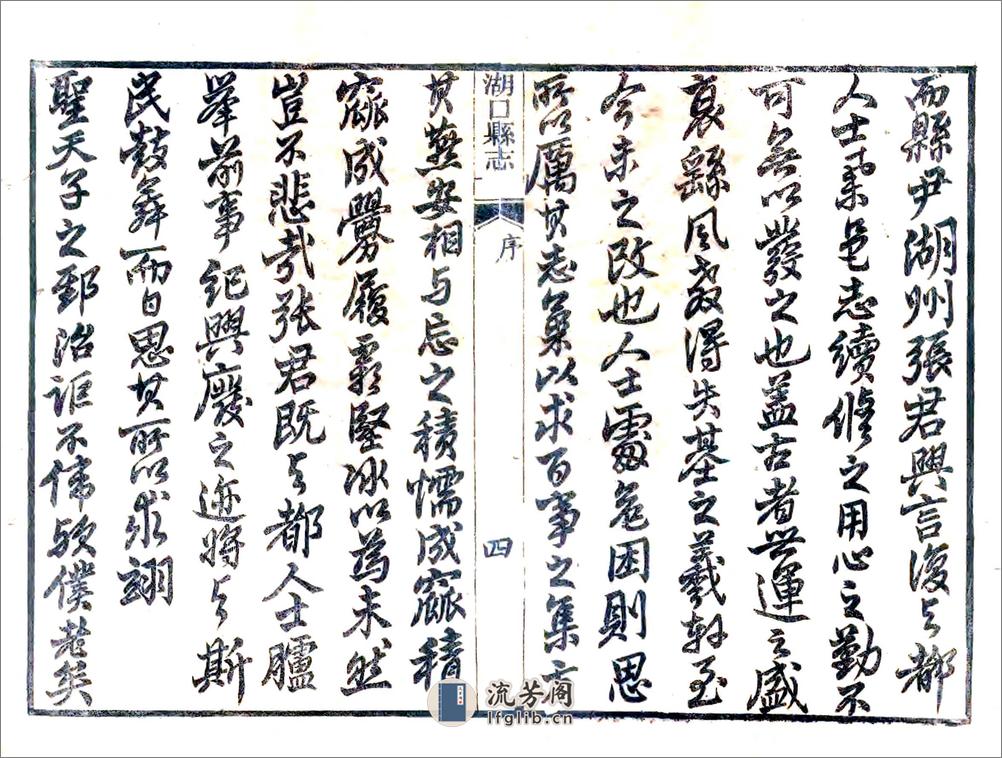 而縣尹湖州張君興言復与都
人士秉邑志續修之用心之勤不
可無以發之也蓋古者世運之盛
衰繇風教得失基之羲軒至
今未之改也人士處危困則思
所以厲其志氣以求百事之集
湖口縣志
序
四
其燕安相与忘之積懦成窳積
窳成釁履霜堅冰以為未然
豈不悲哉張君既与都人士臚
舉前事紀興廢之迹將与斯
民鼓舞而日思其所以求翊
聖天子之郅治詎不偉歟僕老矣
流芳阁
lfglib.cn